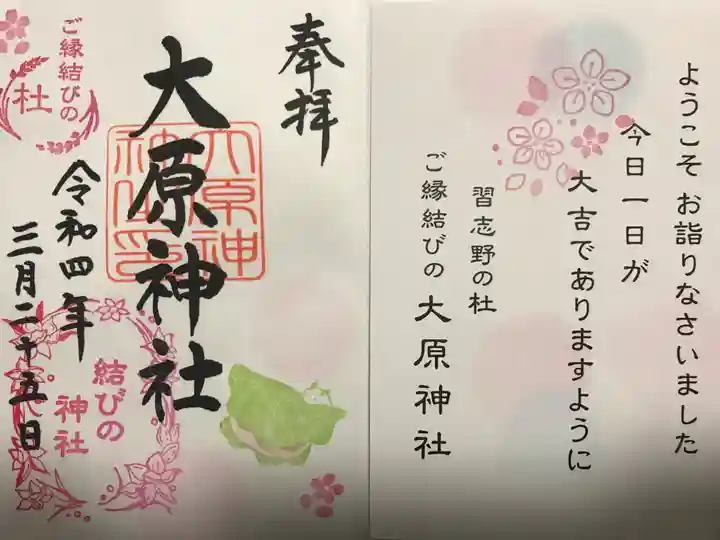 奉拝
大原神社
大原神社印
ご縁結びの
杜
令和四年
三月二十五日
結びの
神社
ようこそ お詣りなさいました
今日一日が
大吉でありますように
習志野の杜
ご縁結びの 大原神社